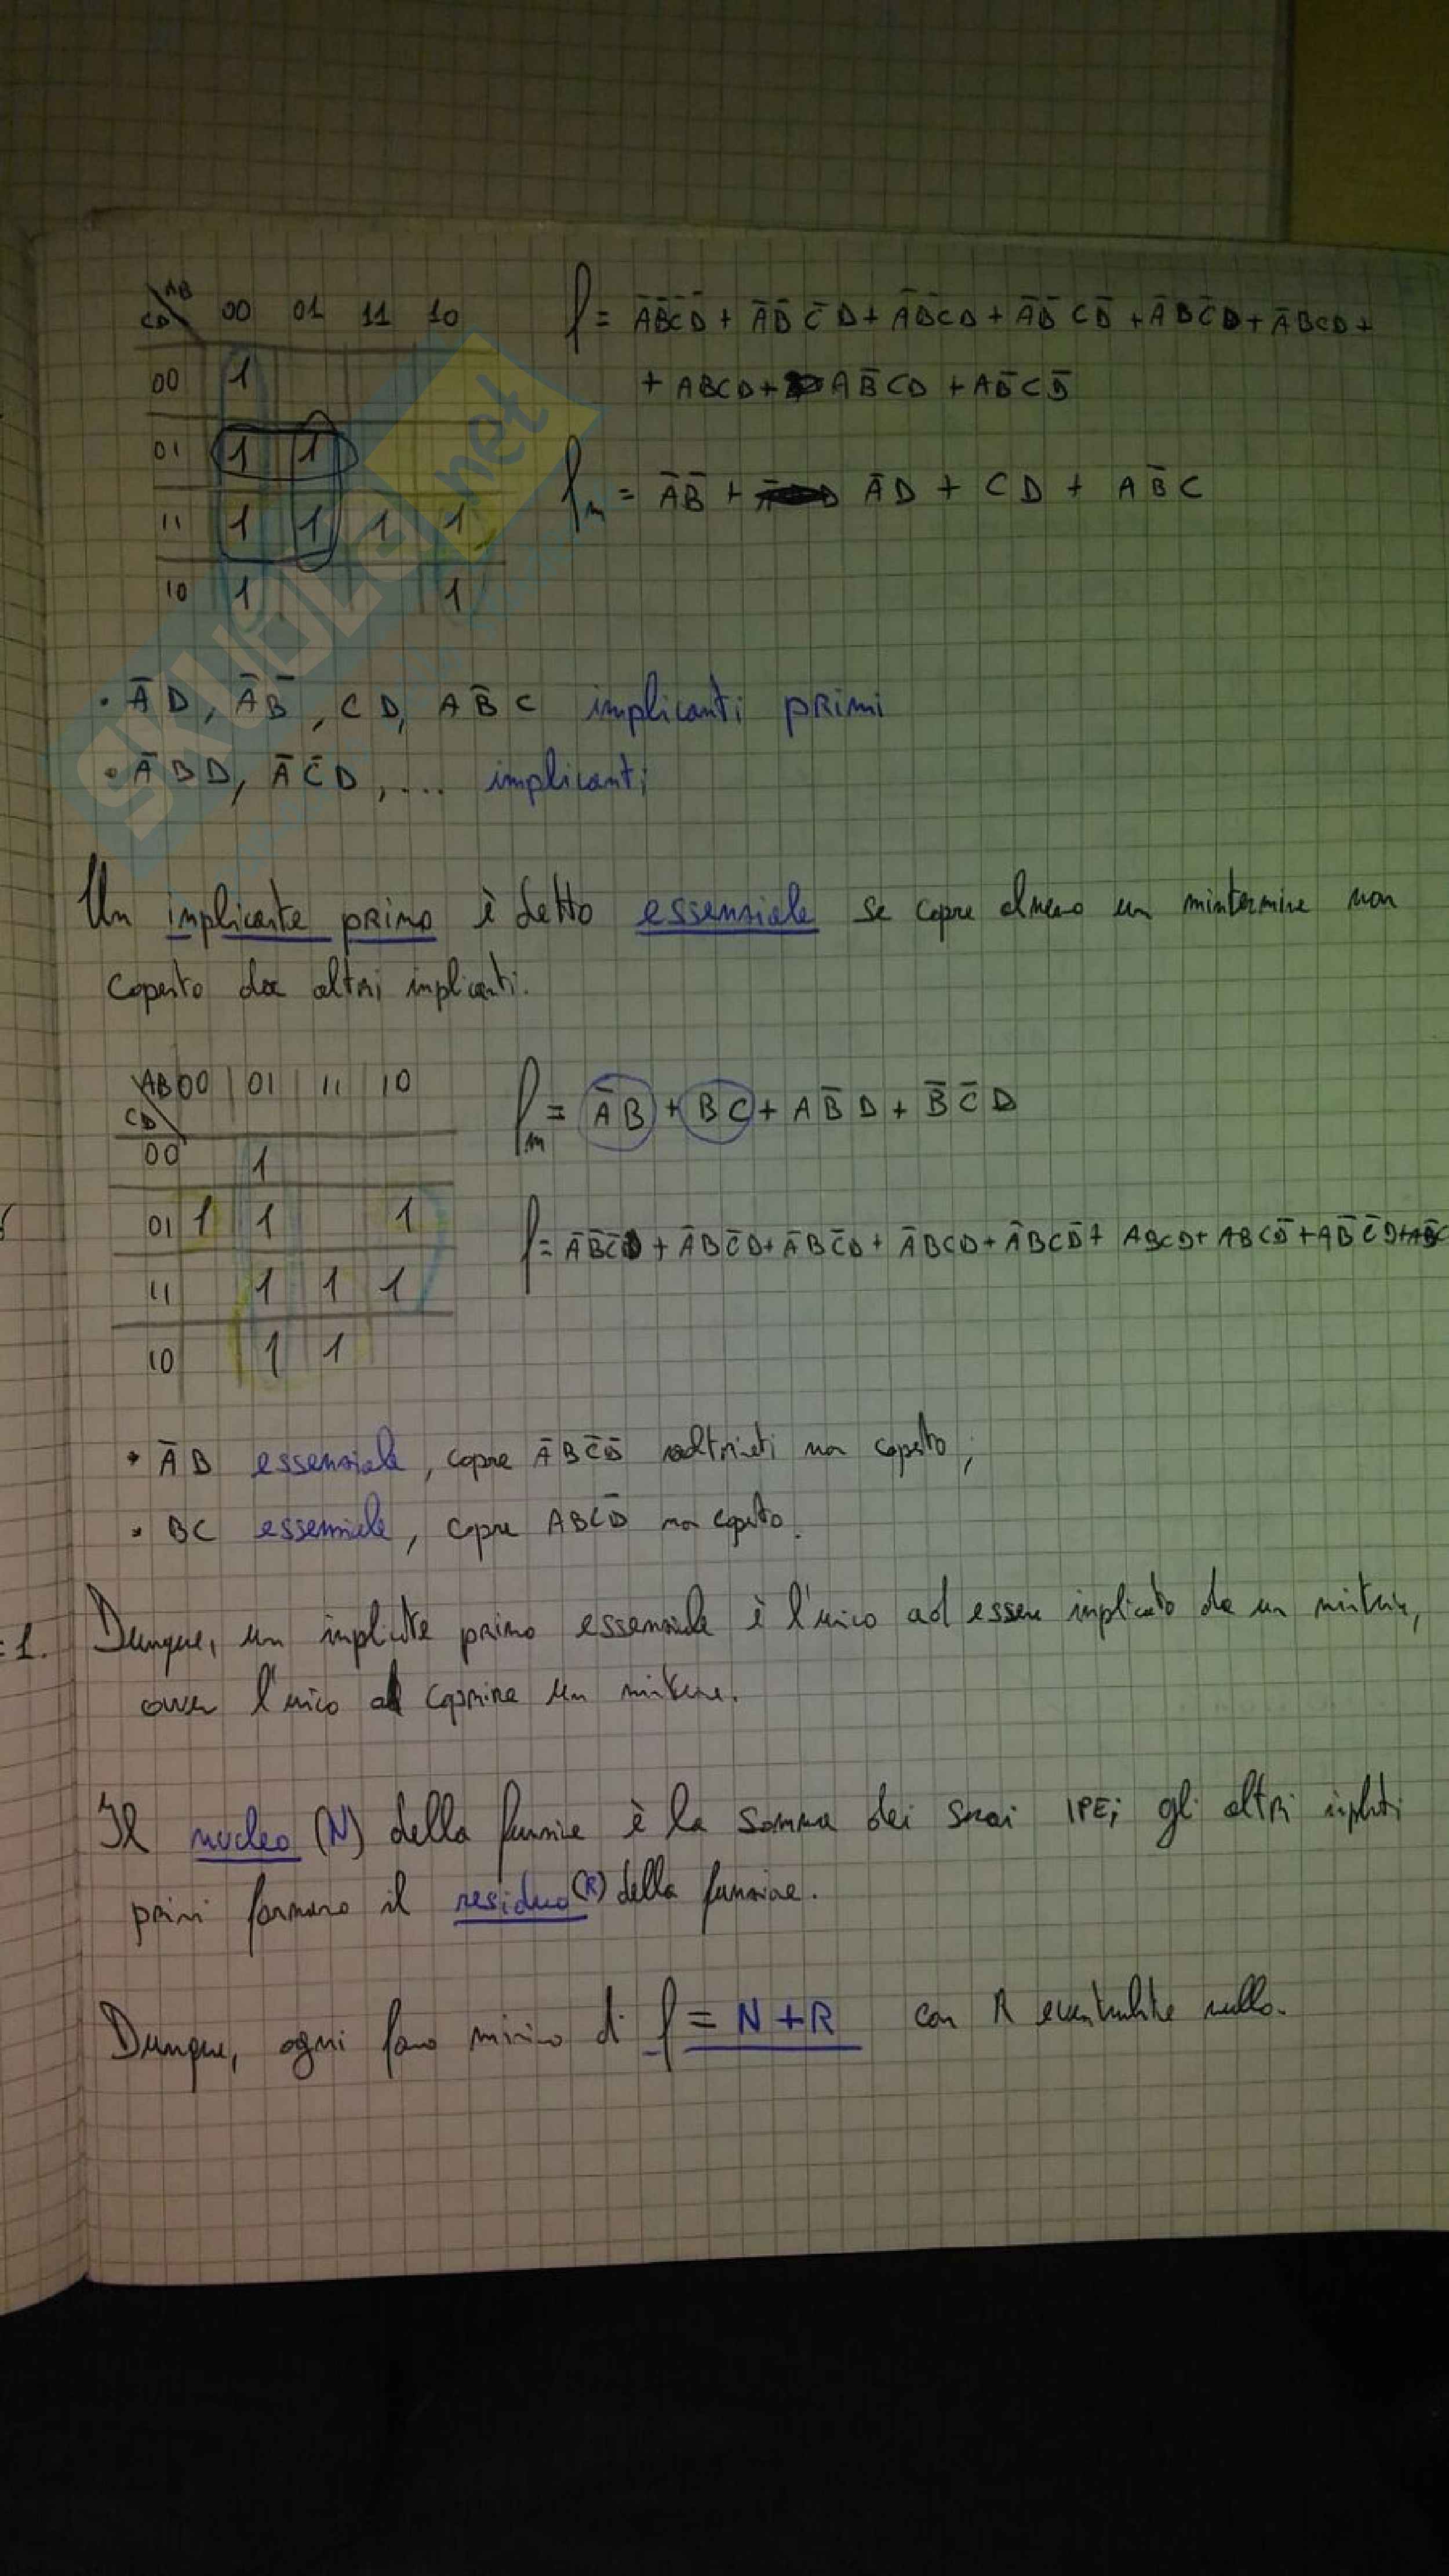 AB
CD 00 01 11 10
00 1
01 1 1
11 1 1 1 1
10 1 1
f = A̅B̅C̅D̅ + A̅B̅C̅D + A̅B̅CD + A̅B̅CD̅ + A̅BC̅D + A̅BCD +
+ ABCD + AB̅CD + AB̅CD̅
fm = A̅B̅ + A̅D + CD + AB̅C
• A̅D, A̅B̅, CD, AB̅C implicanti primi
• A̅BD, A̅C̅D, .... implicanti
Un implicante primo è detto essenziale se copre almeno un mintermine non
coperto da altri implicanti.
AB 00 01 11 10
CD
00 1
01 1 1 1
11 1 1 1
10 1 1
fm = A̅B + BC + AB̅D + B̅C̅D
f = A̅B̅C̅D + A̅BC̅D + A̅BC̅D + A̅BCD + A̅BCD̅ + ABCD + ABCD̅ + AB̅C̅D +
• A̅B essenziale, copre A̅BC̅D̅ non coperto;
• BC essenziale, copre ABCD̅ non coperto.
=1.
Dunque, un implicante primo essenziale è l'unico ad essere implicato da un
l'unico a coprire un
Il nucleo (N) della funzione è la somma dei suoi IPE; gli altri
primi formano il residuo (R) della funzione.
Dunque, ogni di f = N + R con R nullo.
SKUOLA.net